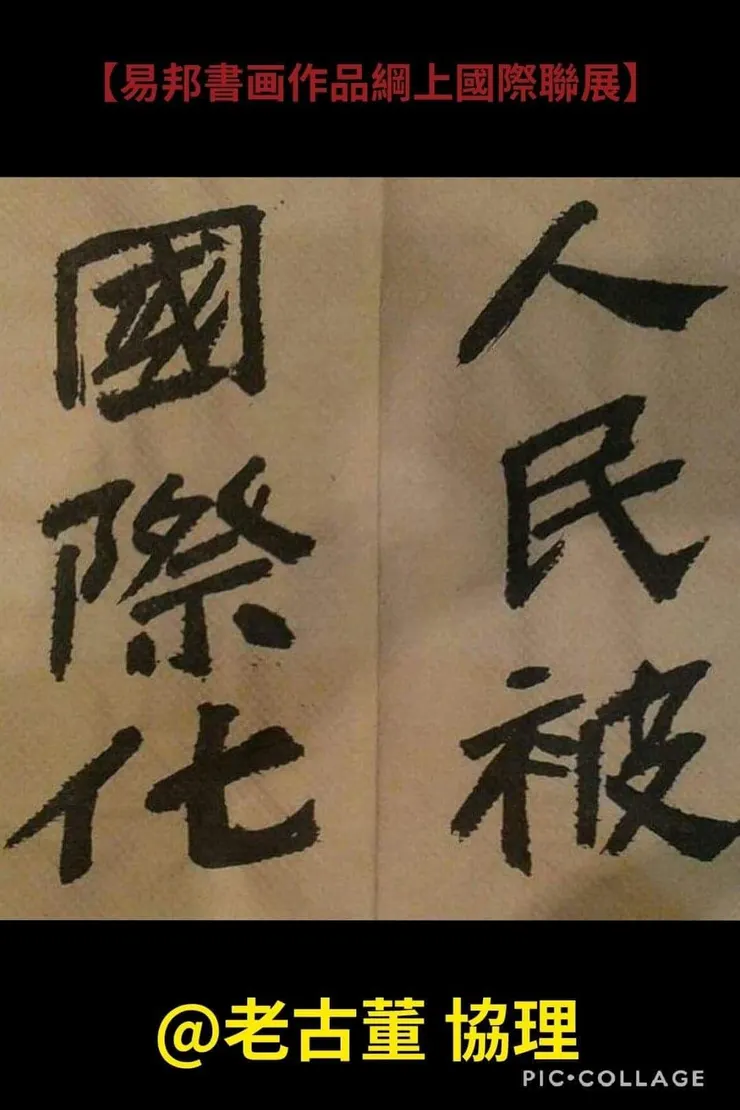 【易邦書画作品綱上國際聯展】
人民被
國際化
@老古董 協理
PIC•COLLAGE